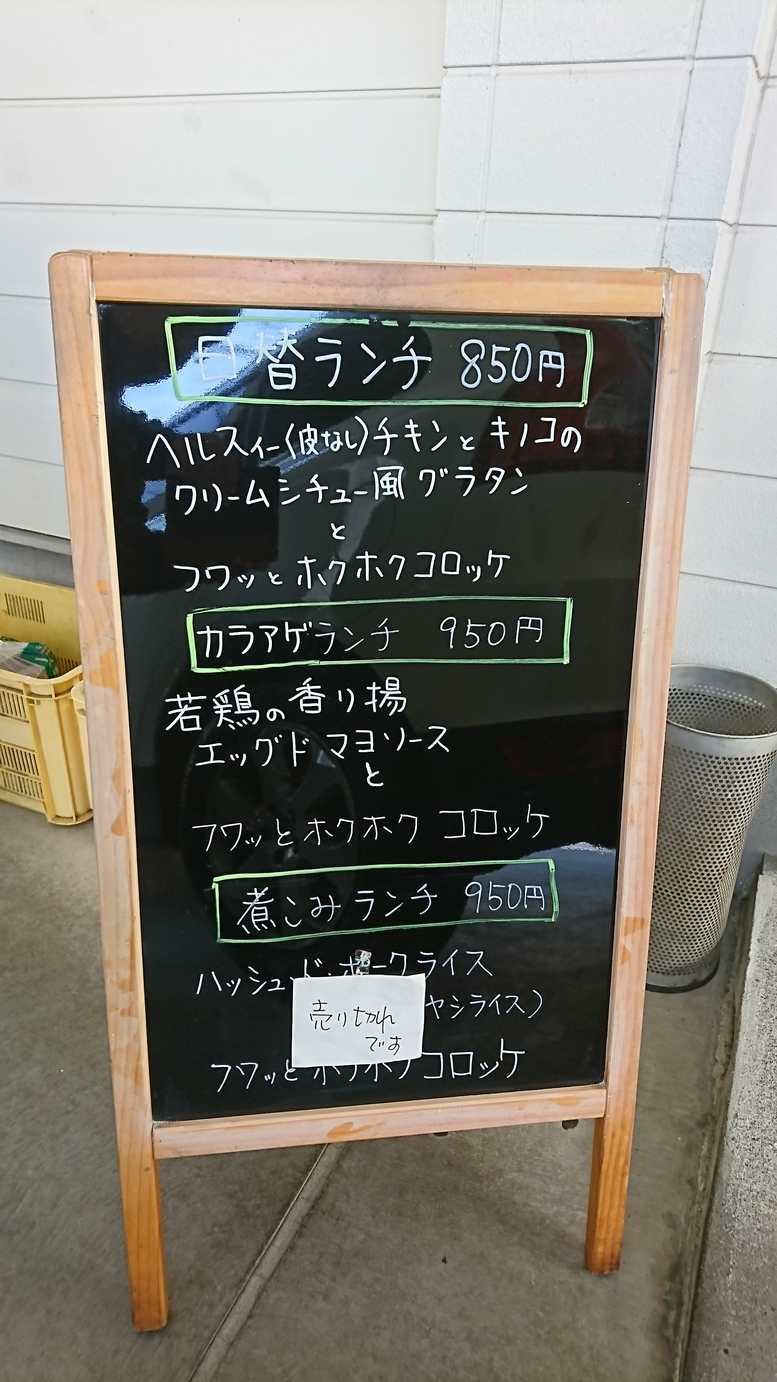 日替ランチ 850円
ヘルスィー(皮なし)チキンとキノコの
クリームシチュー風グラタン
と
フワッとホクホクコロッケ
カラアゲランチ 950円
若鶏の香り揚
エッグドマヨソース
と
フワッとホクホクコロッケ
煮こみランチ 950円
ハッシュドポークライス
ヤシライス)
売り切れ
です
フワッとホクホクコロッケ